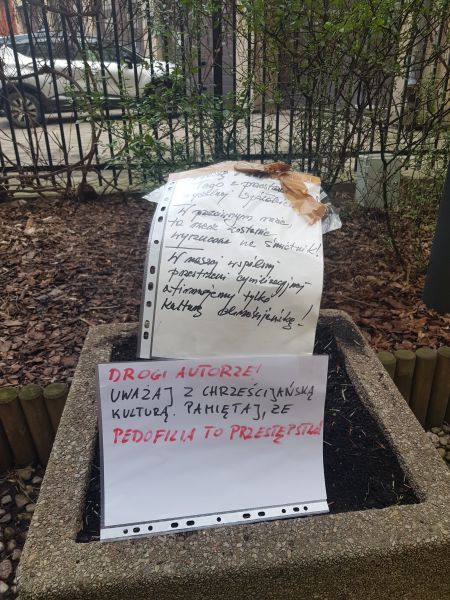 tego z przestrzeni
wspólnej
W przeciwnym razie,
ta rzecz zostanie
wyrzucona na śmietnik!
W naszej wspólnej
przestrzeni cywilizacyjnej
afirmujemy tylko
kulturę chrześcijańską!
DROGI AUTORZE!
UWAŻAJ Z CHRZEŚCIJAŃSKĄ
KULTURĄ. PAMIĘTAJ, ŻE
PEDOFILIA TO PRZESTĘPSTWO